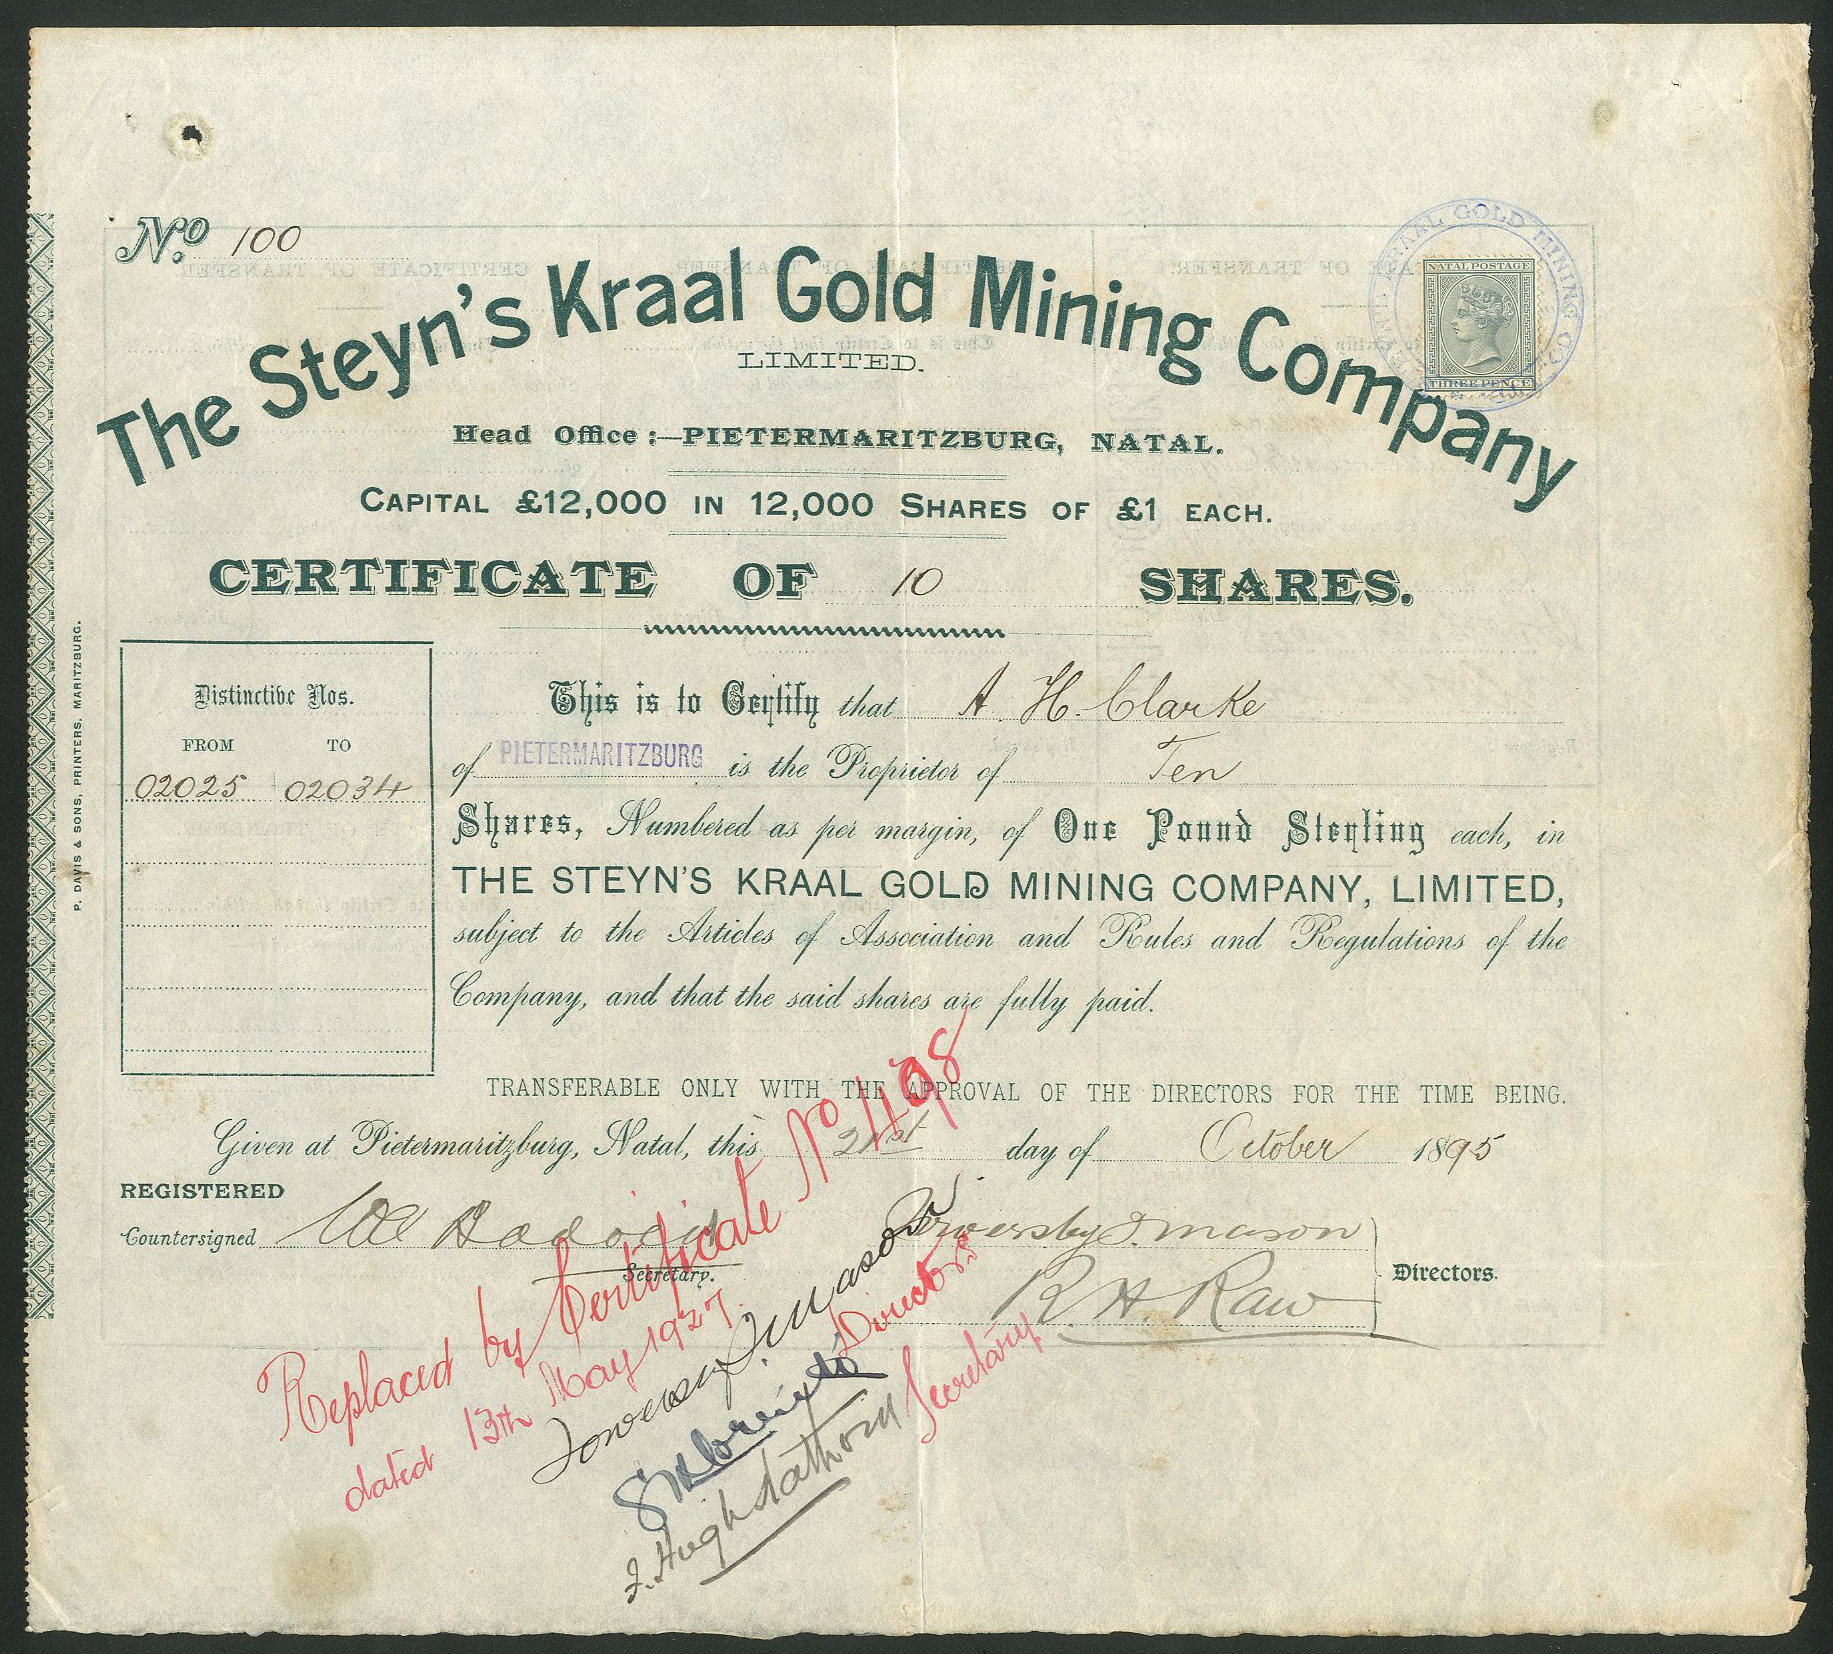 No. 100
The Steyn's Kraal Gold Mining Company
LIMITED.
KRAAL GOLD MINING CO
NATAL POSTAGE
THREE PENCE
Head Office :—PIETERMARITZBURG, NATAL.
CAPITAL £12,000 IN 12,000 SHARES OF £1 EACH.
CERTIFICATE OF 10 SHARES.
Distinctive Nos.
FROM TO
02025 02034
This is to Certify that A. H. Clarke
of PIETERMARITZBURG is the Proprietor of Ten
Shares, Numbered as per margin, of One Pound Sterling each, in
THE STEYN'S KRAAL GOLD MINING COMPANY, LIMITED,
subject to the Articles of Association and Rules and Regulations of the
Company, and that the said shares are fully paid.
TRANSFERABLE ONLY WITH THE APPROVAL OF THE DIRECTORS FOR THE TIME BEING.
Given at Pietermaritzburg, Natal, this 21st day of October 1895
REGISTERED
Countersigned
Secretary.
J. Mason
R. H. Raw
Directors.
Replaced by Certificate No 498
dated 13th May 1927.
J. Mason
Directors
J. Hugh Hathorn Secretary
P. DAVIS & SONS, PRINTERS, MARITZBURG.